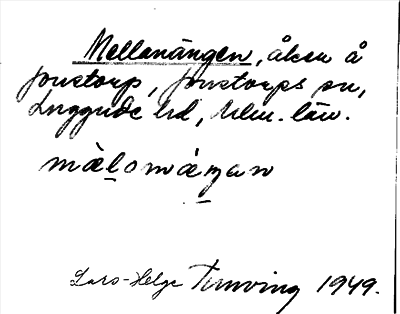 Mellanängen, åker å
Jonstorp, Jonstorps sn,
Luggude hd, Mlm. län.
mȧlomáŋan
Lars-Helge Tunving 1949.